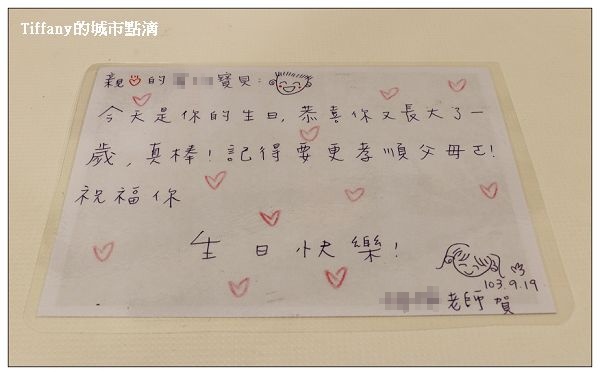 Tiffany的城市點滴
親的 寶貝：
今天是你的生日，恭喜你又長大了一
歲，真棒！記得要更孝順父母ㄛ！
祝福你
生日快樂！
103.9.19
老師 賀